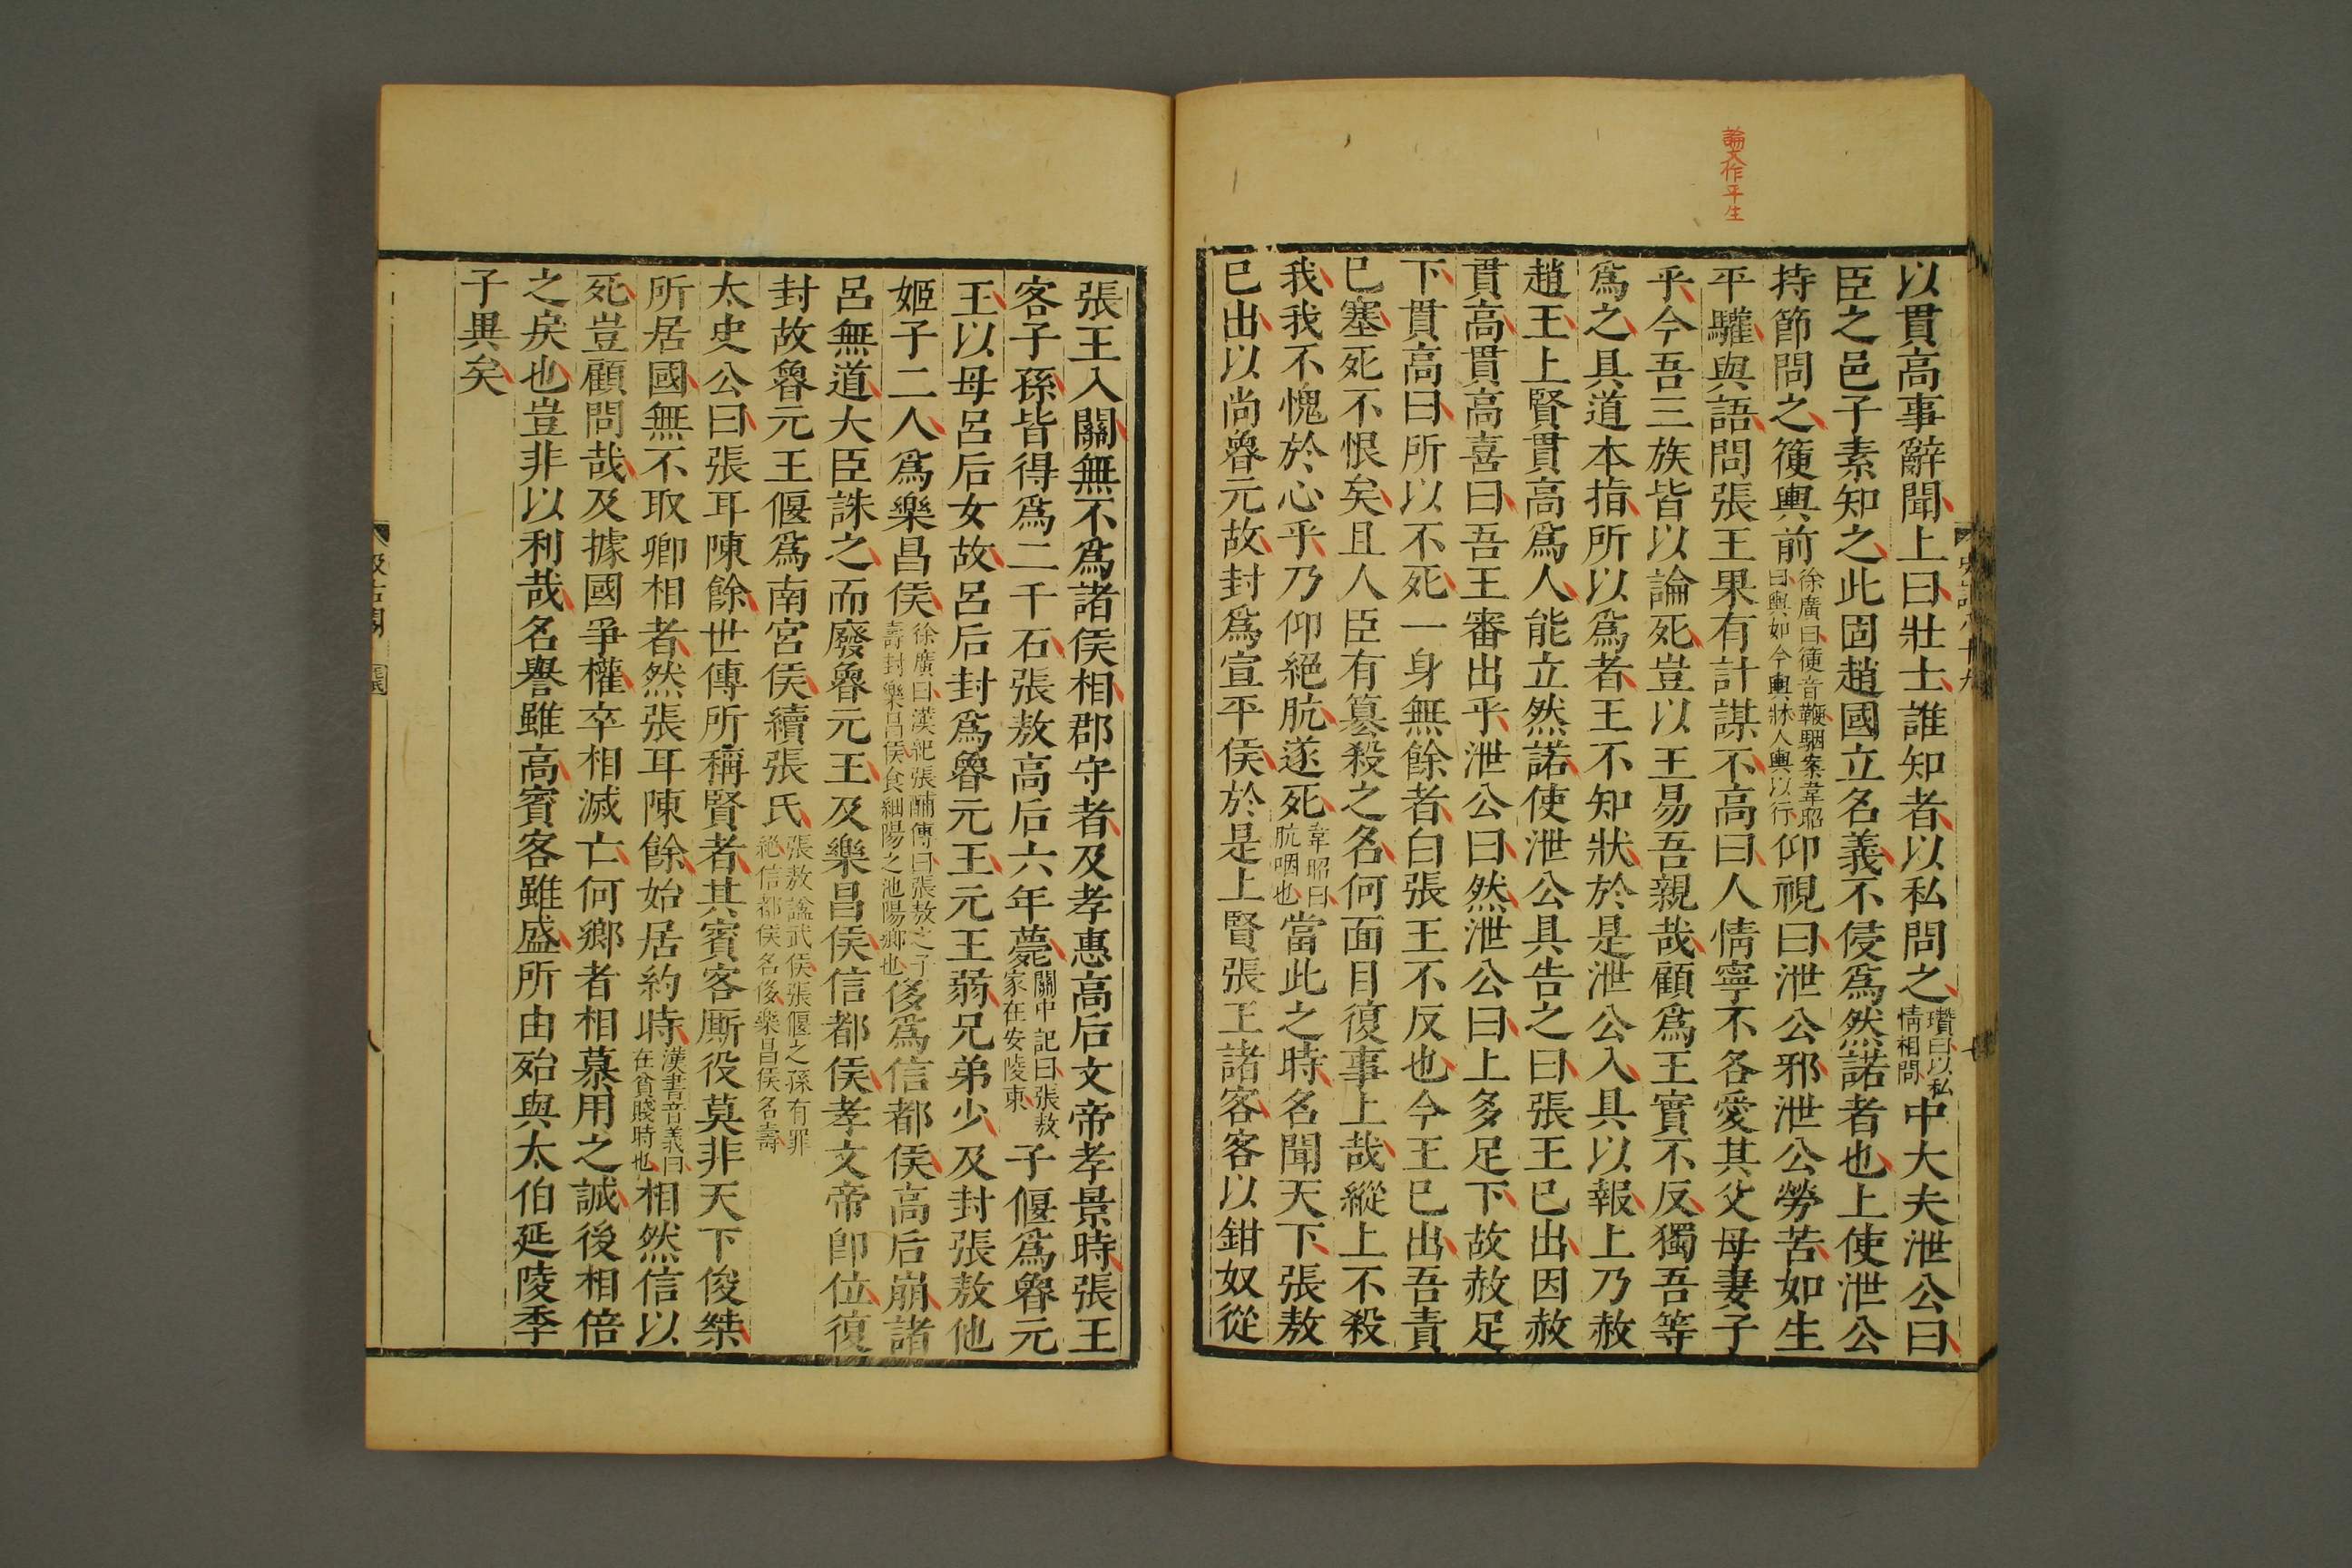 論文作平生
以貫高事辭聞上曰壯士誰知者以私問之瓚曰以私情相問中大夫泄公曰
臣之邑子素知之此固趙國立名義不侵爲然諾者也上使泄公
持節問之箯輿前徐廣曰箯音鞭駰案韋昭曰輿如今輿牀人輿以行仰視曰泄公邪泄公勞苦如生
平驩與語問張王果有計謀不高曰人情寧不各愛其父母妻子
乎今吾三族皆以論死豈以王易吾親哉顧爲王實不反獨吾等
爲之具道本指所以爲者王不知狀於是泄公入具以報上乃赦
趙王上賢貫高爲人能立然諾使泄公具告之曰張王已出因赦
貫高貫高喜曰吾王審出乎泄公曰然泄公曰上多足下故赦足
下貫高曰所以不死一身無餘者白張王不反也今王已出吾責
已塞死不恨矣且人臣有篡殺之名何面目復事上哉縱上不殺
我我不愧於心乎乃仰絕肮遂死韋昭曰肮咽也當此之時名聞天下張敖
已出以尚魯元故封爲宣平侯於是上賢張王諸客客以鉗奴從
張王入關無不爲諸侯相郡守者及孝惠高后文帝孝景時張王
客子孫皆得爲二千石張敖高后六年薨關中記曰張敖家在安陵東子偃爲魯元
王以母呂后女故呂后封爲魯元王元王弱兄弟少及封張敖他
姬子二人爲樂昌侯徐廣曰漢紀張酺傳曰張敖之子壽封樂昌侯食細陽之池陽鄉也侈爲信都侯高后崩諸
呂無道大臣誅之而廢魯元王及樂昌侯信都侯孝文帝卽位復
封故魯元王偃爲南宮侯續張氏張敖謚武侯張偃之孫有罪絕信都侯名侈樂昌侯名壽
太史公曰張耳陳餘世傳所稱賢者其賓客厮役莫非天下俊桀
所居國無不取卿相者然張耳陳餘始居約時漢書音義曰在貧賤時也相然信以
死豈顧問哉及據國爭權卒相滅亡何鄉者相慕用之誠後相倍
之戾也豈非以利哉名譽雖高賓客雖盛所由殆與太伯延陵季
子異矣
八